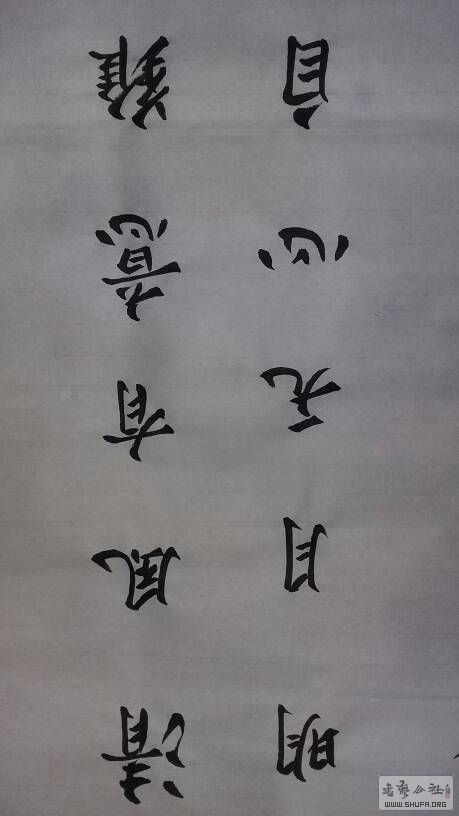 清風有意難
明月无心自
WWW.SHUFA.ORG